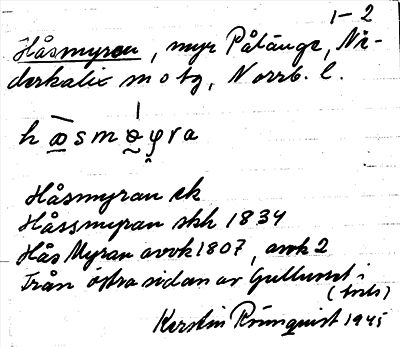 1-2
Håsmyren, myr Pålänge, Ne-
derkalix m o tg, Norrb. l.
Håsmyran ek
Håssmyran skh 1834
Hås Myran avvk 1807, avvk 2
Från östra sidan av Gulluset i
(forts)
Kerstin Rönnquist 1945